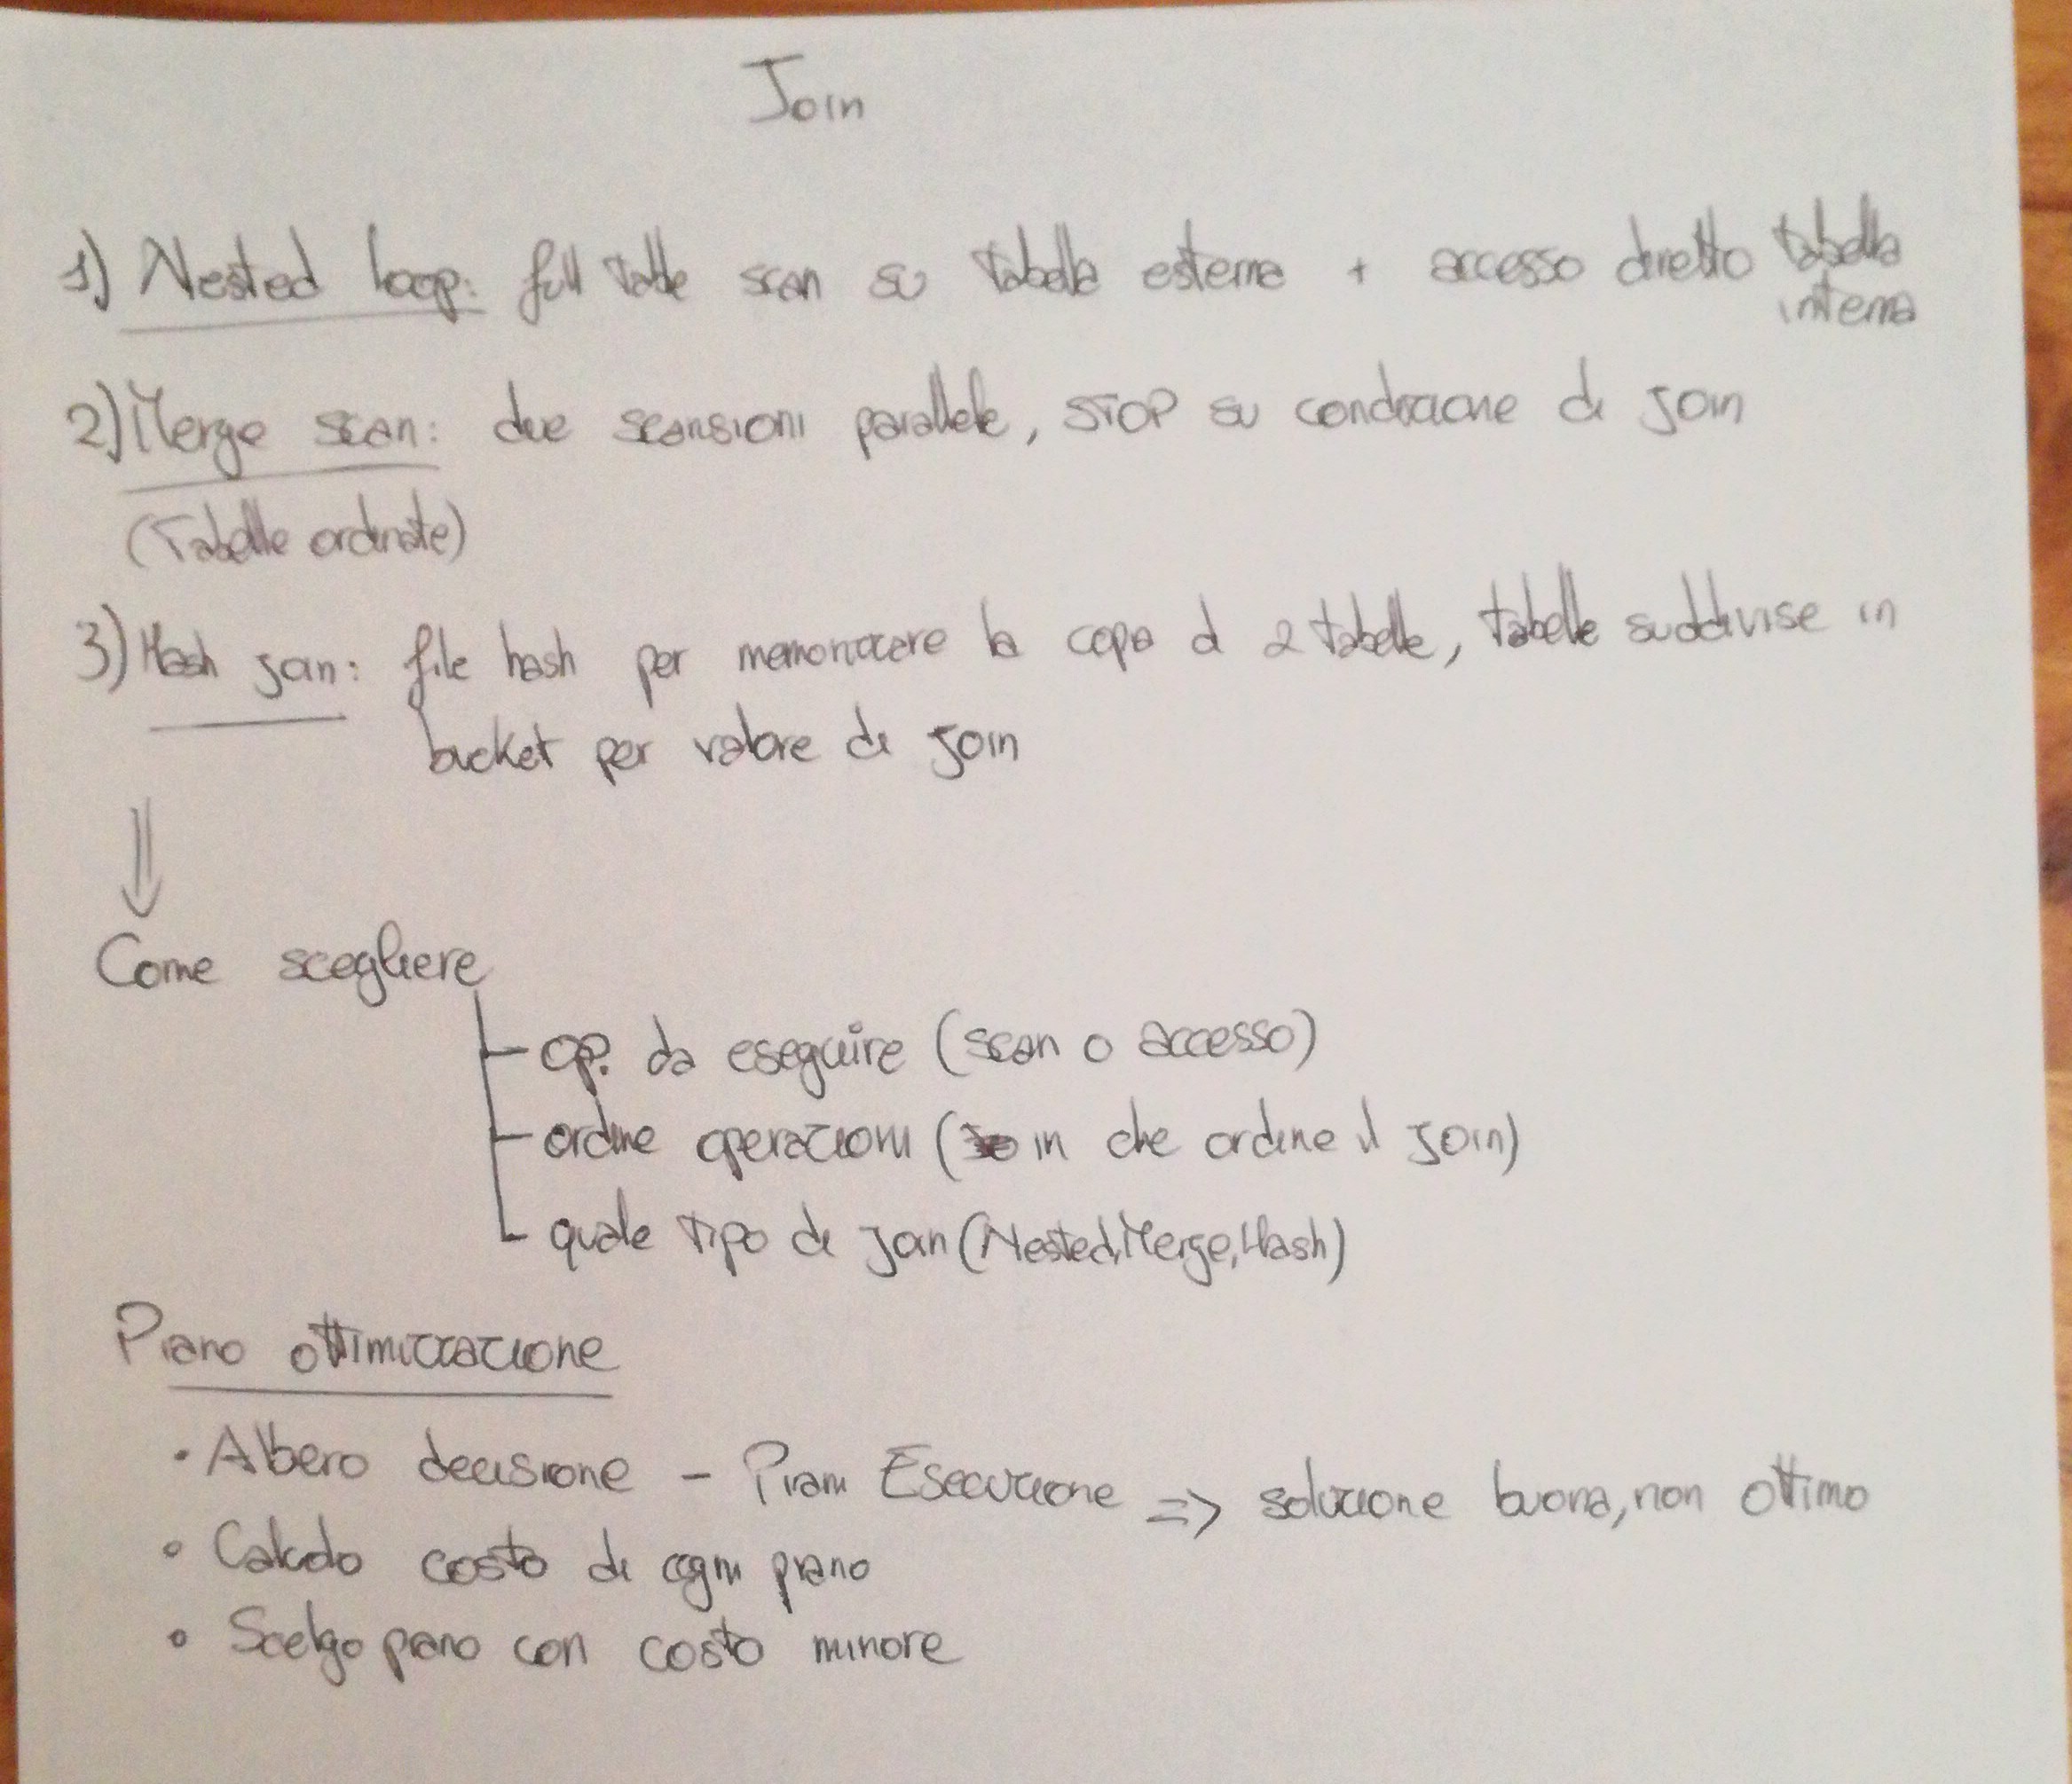 Join
1) Nested loop: full table scan su tabella esterna + accesso diretto tabella
interna
2) Merge scan: due scansioni parallele, STOP su condizione di join
(Tabelle ordinate)
3) Hash join: file hash per memorizzare la copia di 2 tabelle, tabelle suddivise in
bucket per valore di join
⇓
Come scegliere
op. da eseguire (scan o accesso)
ordine operazioni (in che ordine il join)
quale tipo di join (Nested, Merge, Hash)
Piano ottimizzazione
• Albero decisione - Piani Esecuzione => soluzione buona, non ottimo
• Calcolo costo di ogni piano
• Scelgo piano con costo minore